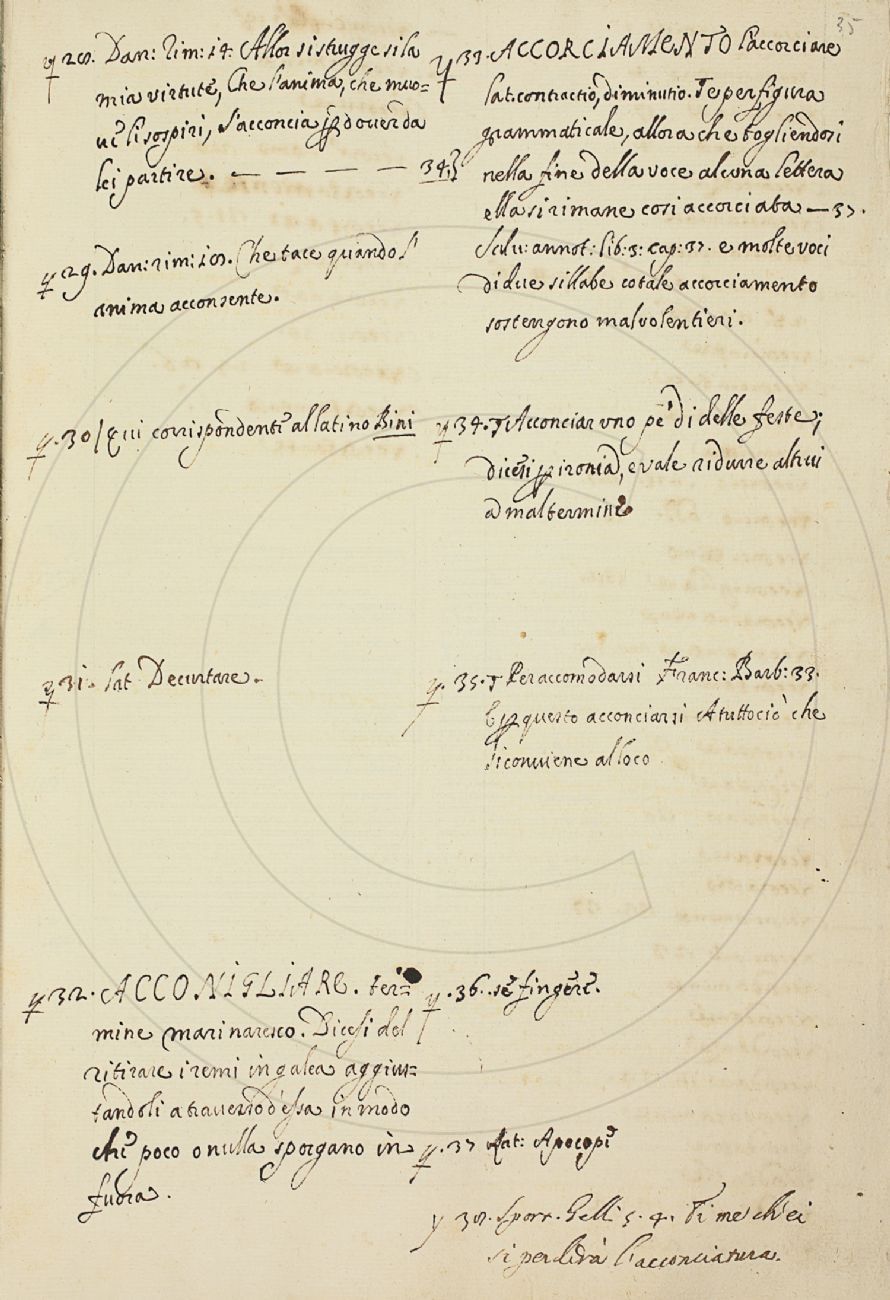 35
28. Dan: Rim: 14. Allor si strugge si la
mia virtute, Che l'anima, che muo=
ve li sospiri, S'acconcia p dover da
lei partire. — — — — — 34.
29. Dan: rim: 108. Che tace quando l'
anima acconsente.
30 / Qui corrispondente al latino Bini
31. Lat Decurtare.
32. ACCONIGLIARE. ter=
mine marinaresco. Dicesi del
ritirare i remi in galea aggius=
tandoli a traverso d'essa in modo
che poco o nulla sporgano in
fuora.
33. ACCORCIAMENTO L'accorciare
lat. contractio, diminutio. T e per figura
grammaticale, allora che togliendosi
nella fine della voce alcuna lettera
ella si rimane cosi accorciata — 37.
Salv: annot: lib: 3: cap: 37. e molte voci
di due sillabe cotale accorciamento
sostengono malvolentieri.
34. T Acconciar uno pe' di delle feste;
dicesi p ironia, e vale ridurre altrui
a mal termine
35. T Per accomodarsi Franc: Barb: 33.
E p questo acconciarsi A tutto ciò che
Si conviene al loco
36. se fingere.
37 Lat: Apocope
38. Sporr. Gelli 5. 4. Ti me ch'ei
si perderà l'acconciatura.